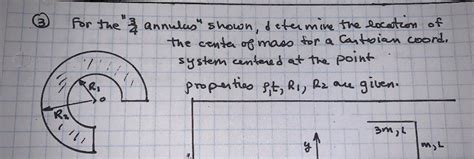 ③ For the "3/4 annulus" shown, determine the location of
the center of mass for a Cartesian coord.
system centered at the point
properties ρ, t, R1, R2 are given.
R1
O
R2
3m, L
y
m, L